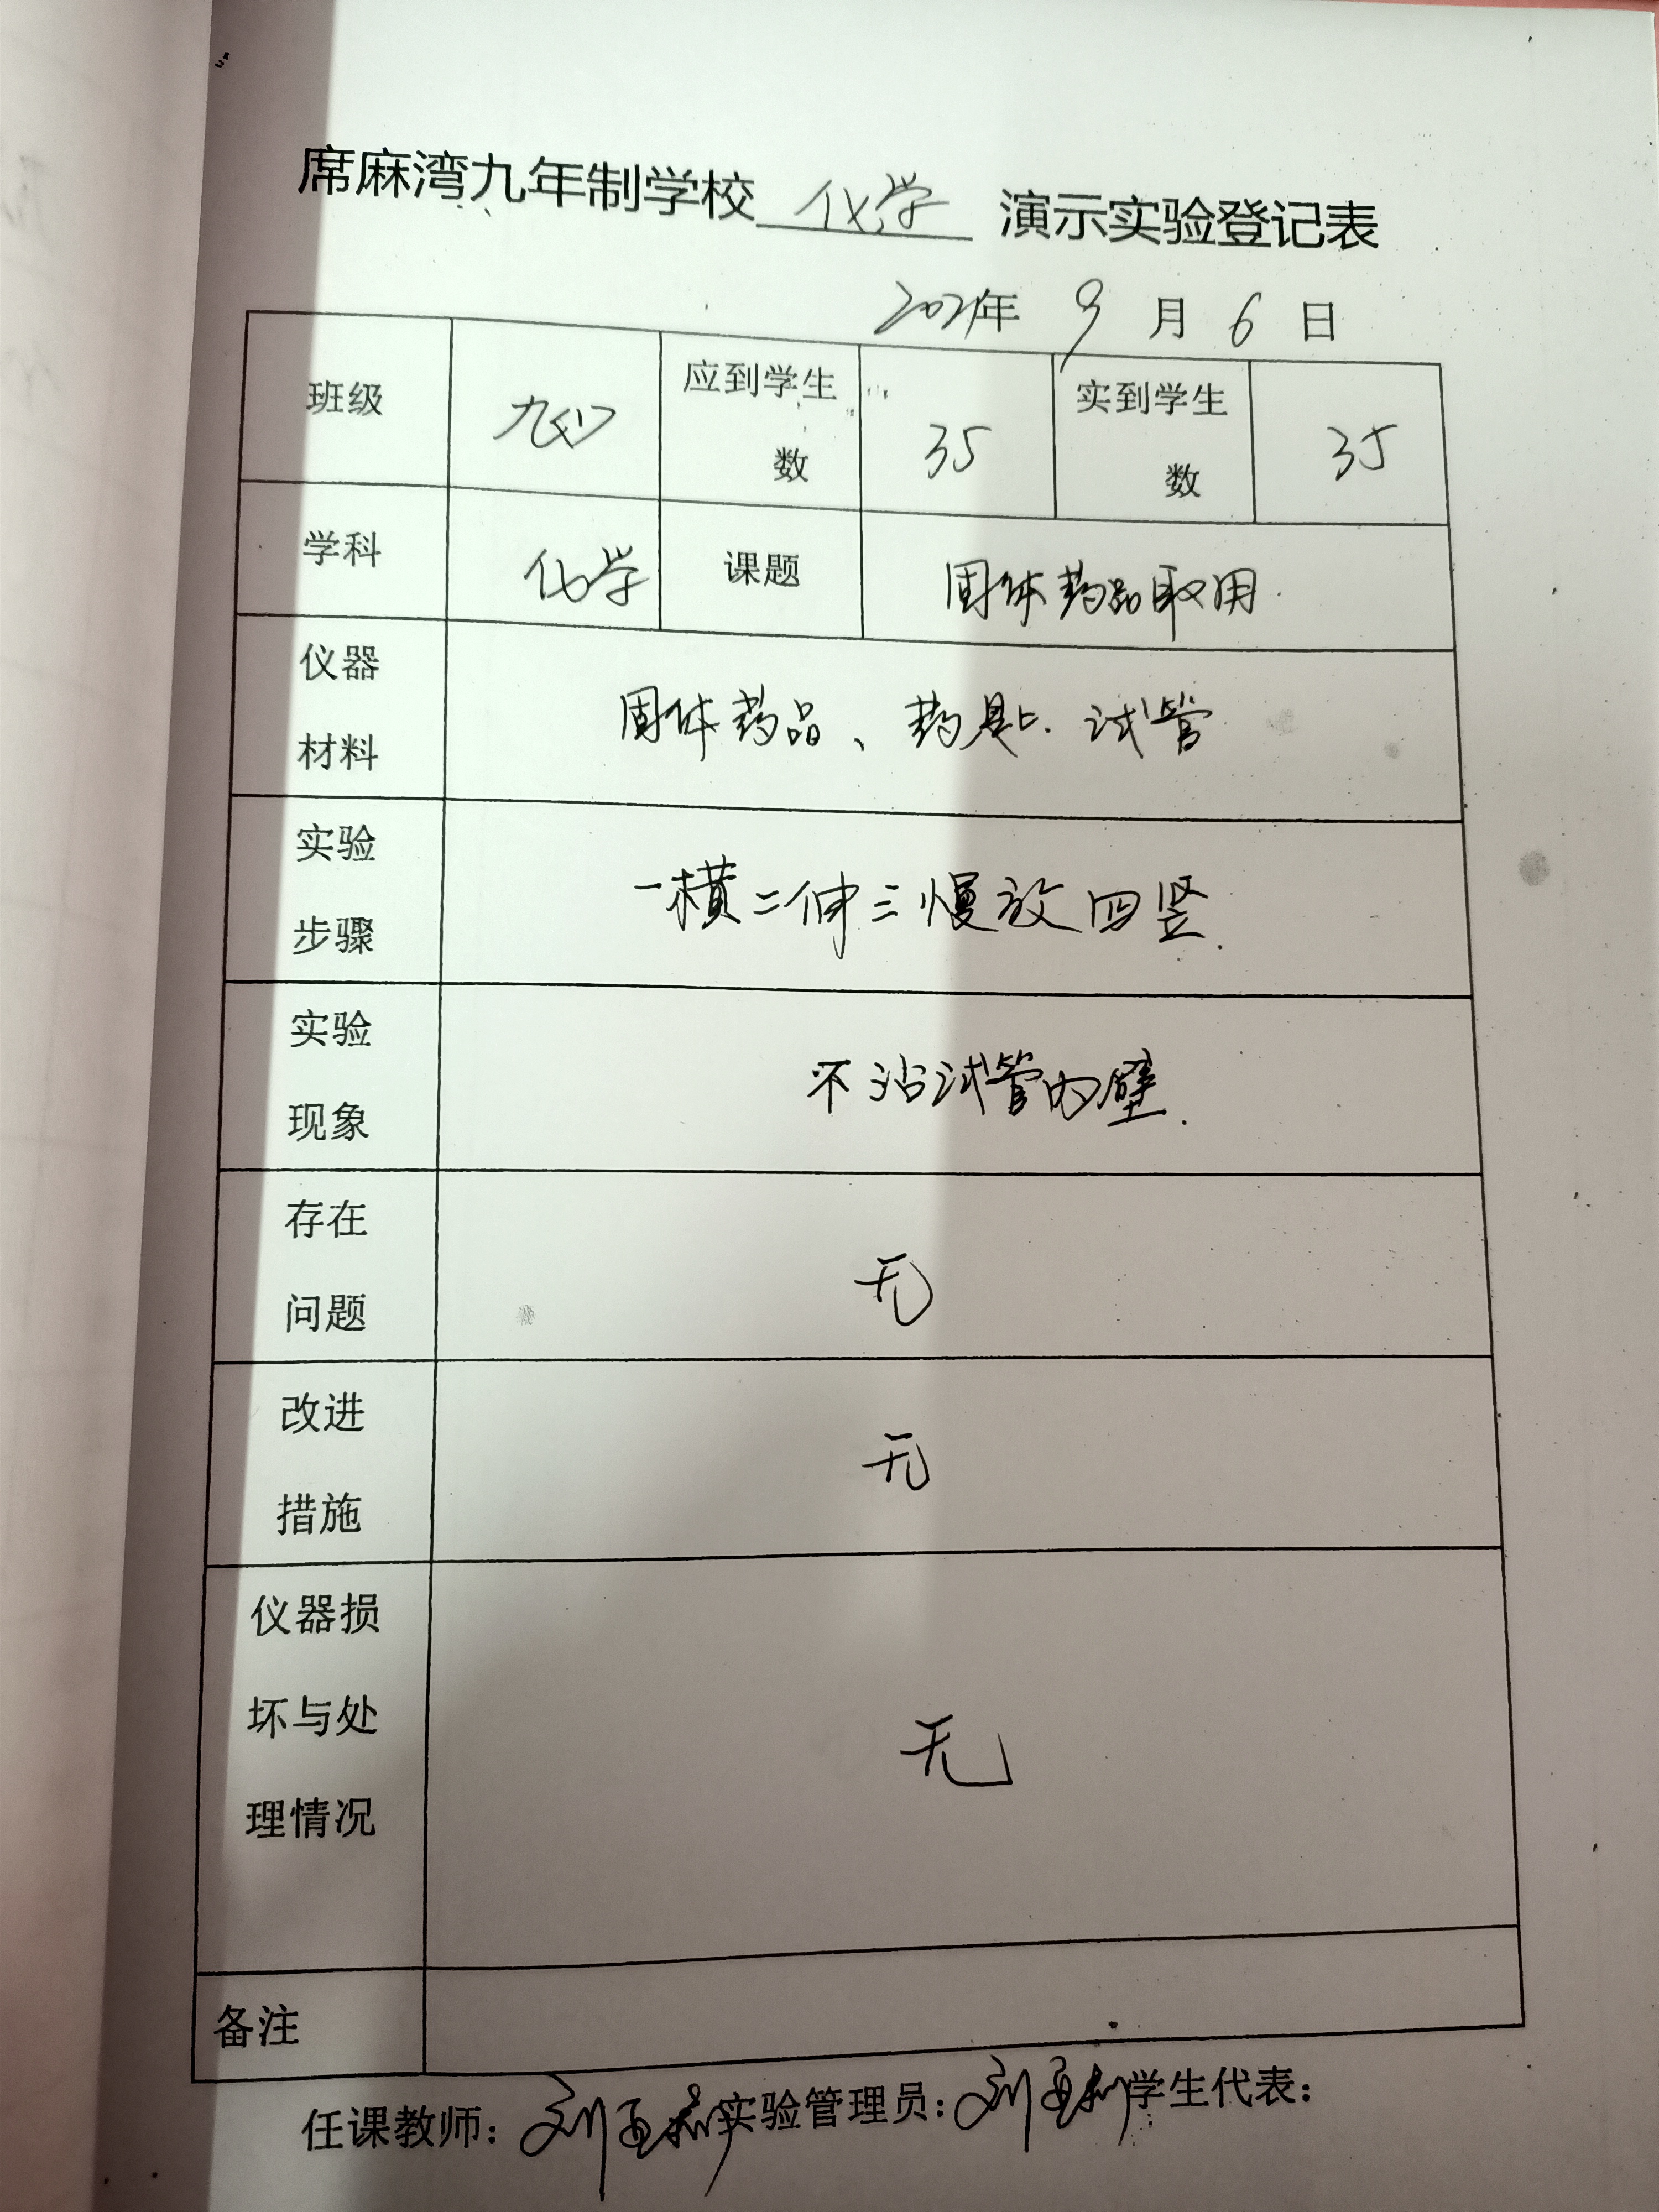 席麻湾九年制学校 化学 演示实验登记表
2021年 9 月 6 日
班级 九(1) 应到学生数 35 实到学生数 35
学科 化学 课题 固体药品取用
仪器材料 固体药品、药匙、试管
实验步骤 一横二伸三慢放四竖.
实验现象 不沾试管内壁.
存在问题 无
改进措施 无
仪器损坏与处理情况 无
备注
任课教师: 刘 实验管理员: 刘 学生代表: